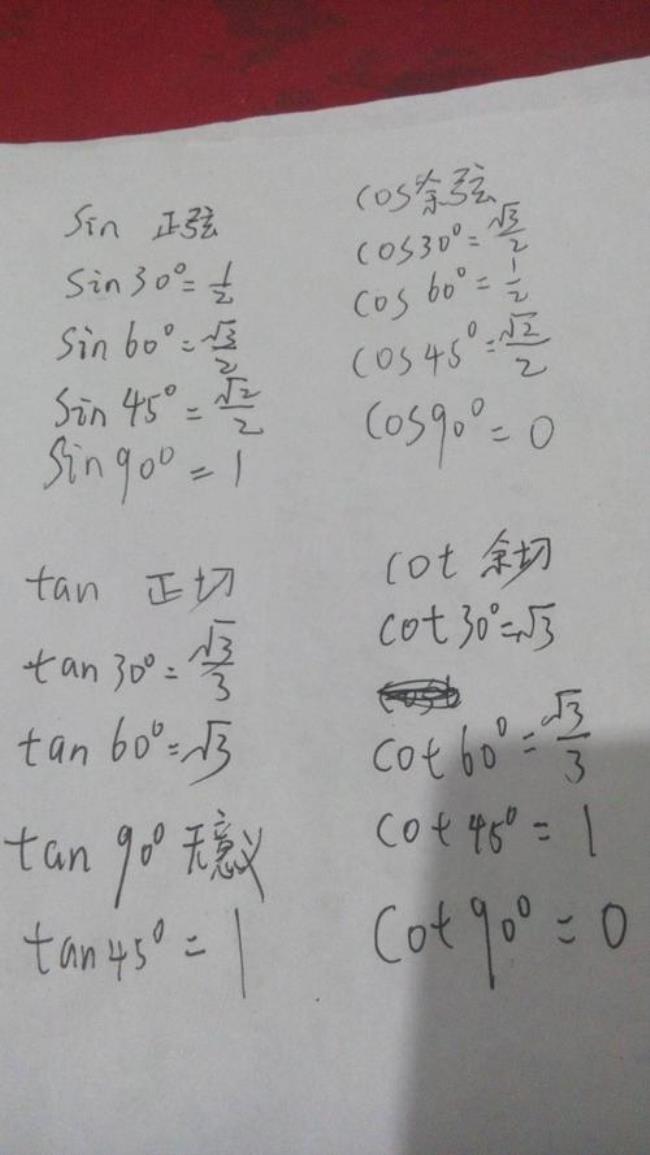 sin 正弦
sin30°=1/2
sin60°=√3/2
sin45°=√2/2
sin90°=1
cos余弦
cos30°=√3/2
cos60°=1/2
cos45°=√2/2
cos90°=0
tan 正切
tan30°=√3/3
tan60°=√3
tan90°无意义
tan45°=1
cot 余切
cot30°=√3
cot60°=√3/3
cot45°=1
cot90°=0